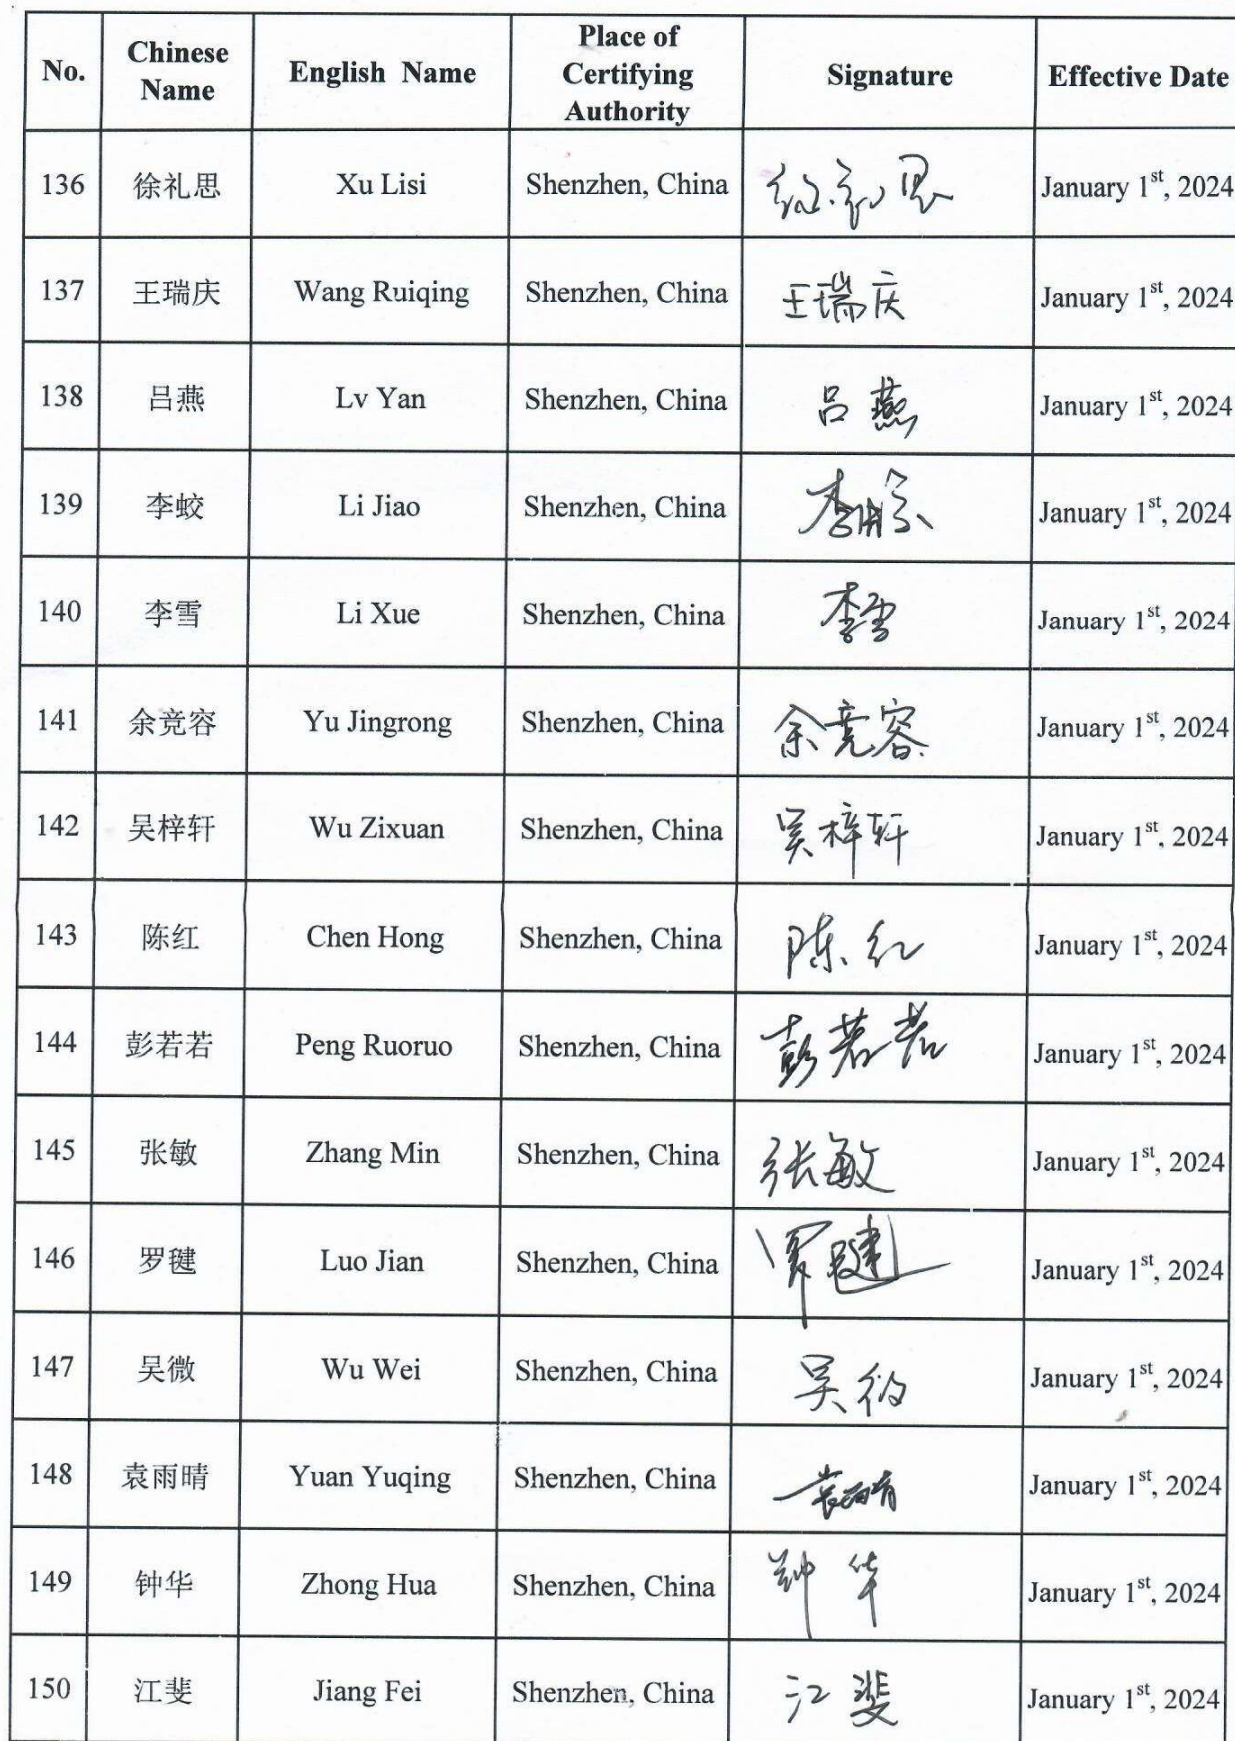 No. Chinese Name English Name Place of Certifying Authority Signature Effective Date
136 徐礼思 Xu Lisi Shenzhen, China 徐礼思 January 1st, 2024
137 王瑞庆 Wang Ruiqing Shenzhen, China 王瑞庆 January 1st, 2024
138 吕燕 Lv Yan Shenzhen, China 吕燕 January 1st, 2024
139 李蛟 Li Jiao Shenzhen, China 李蛟 January 1st, 2024
140 李雪 Li Xue Shenzhen, China 李雪 January 1st, 2024
141 余竞容 Yu Jingrong Shenzhen, China 余竞容 January 1st, 2024
142 吴梓轩 Wu Zixuan Shenzhen, China 吴梓轩 January 1st, 2024
143 陈红 Chen Hong Shenzhen, China 陈红 January 1st, 2024
144 彭若若 Peng Ruoruo Shenzhen, China 彭若若 January 1st, 2024
145 张敏 Zhang Min Shenzhen, China 张敏 January 1st, 2024
146 罗毽 Luo Jian Shenzhen, China 罗毽 January 1st, 2024
147 吴微 Wu Wei Shenzhen, China 吴微 January 1st, 2024
148 袁雨晴 Yuan Yuqing Shenzhen, China 袁雨晴 January 1st, 2024
149 钟华 Zhong Hua Shenzhen, China 钟华 January 1st, 2024
150 江斐 Jiang Fei Shenzhen, China 江斐 January 1st, 2024